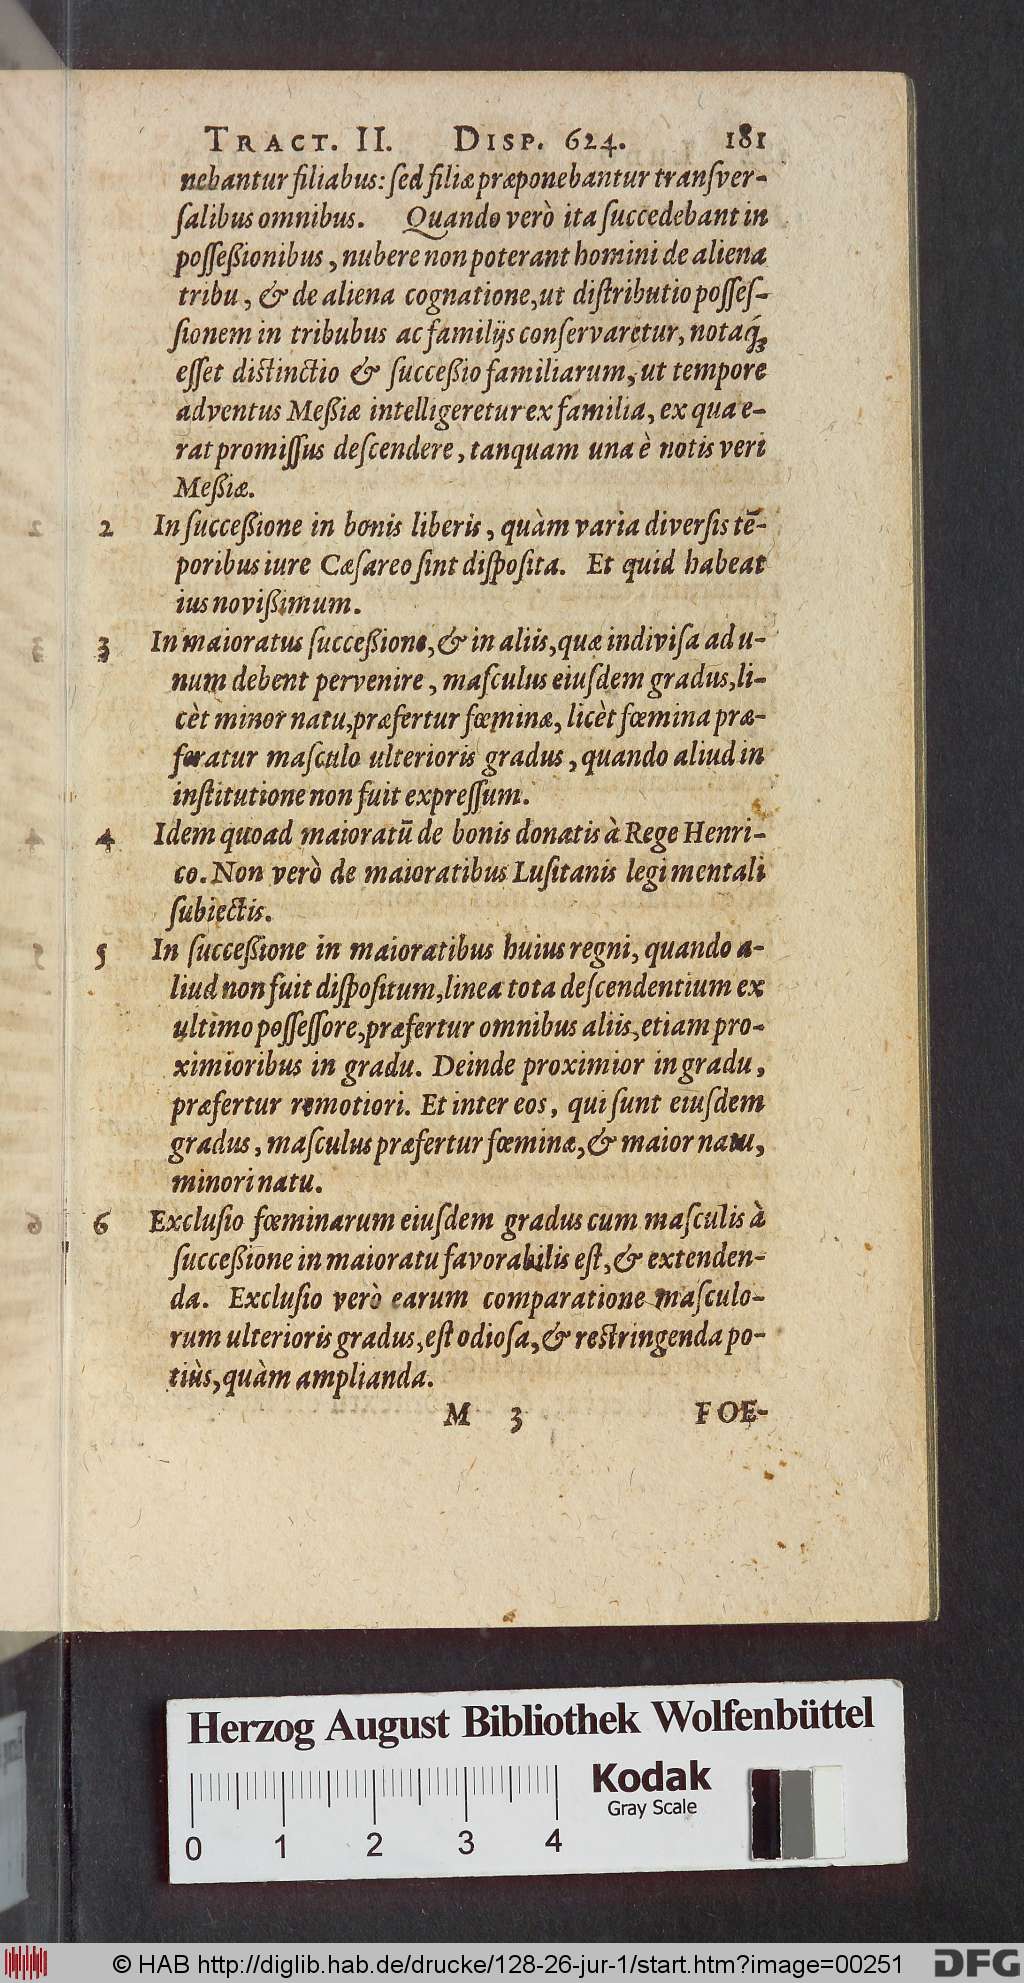 TRACT. II. DISP. 624. 181
nebantur filiabus: ſed filiæ præponebantur tranſver-
ſalibus omnibus. Quando verò ita ſuccedebant in
poſſeßionibus, nubere non poterant homini de aliena
tribu, & de aliena cognatione, ut diſtributio poſſeſ-
ſionem in tribubus ac familijs conſervaretur, notaq́;
eſſet distinctio & ſucceßio familiarum, ut tempore
adventus Meßiæ intelligeretur ex familia, ex qua e-
rat promiſſus deſcendere, tanquam una è notis veri
Meßiæ.
2 In ſucceßione in bonis liberis, quàm varia diverſis tē-
poribus iure Cæſareo ſint diſpoſita. Et quid habeat
ius novißimum.
3 In maioratus ſucceßione, & in aliis, quæ indiviſa ad u-
num debent pervenire, maſculus eiuſdem gradus, li-
cèt minor natu, præfertur fœminæ, licèt fœmina præ-
feratur maſculo ulterioris gradus, quando aliud in
inſtitutione non fuit expreſſum.
4 Idem quoad maioratū de bonis donatis à Rege Henri-
co. Non verò de maioratibus Luſitanis legi mentali
ſubiectis.
5 In ſucceßione in maioratibus huius regni, quando a-
liud non fuit diſpoſitum, linea tota deſcendentium ex
ultimo poſſeſſore, præfertur omnibus aliis, etiam pro-
ximioribus in gradu. Deinde proximior in gradu,
præfertur remotiori. Et inter eos, qui ſunt eiuſdem
gradus, maſculus præfertur fœminæ, & maior natu,
minori natu.
6 Excluſio fœminarum eiuſdem gradus cum maſculis à
ſucceßione in maioratu favorabilis eſt, & extenden-
da. Excluſio verò earum comparatione maſculo-
rum ulterioris gradus, eſt odioſa, & restringenda po-
tiùs, quàm amplianda.
M 3 FOE-
Herzog August Bibliothek Wolfenbüttel
Kodak
Gray Scale
0 1 2 3 4
© HAB http://diglib.hab.de/drucke/128-26-jur-1/start.htm?image=00251
DFG